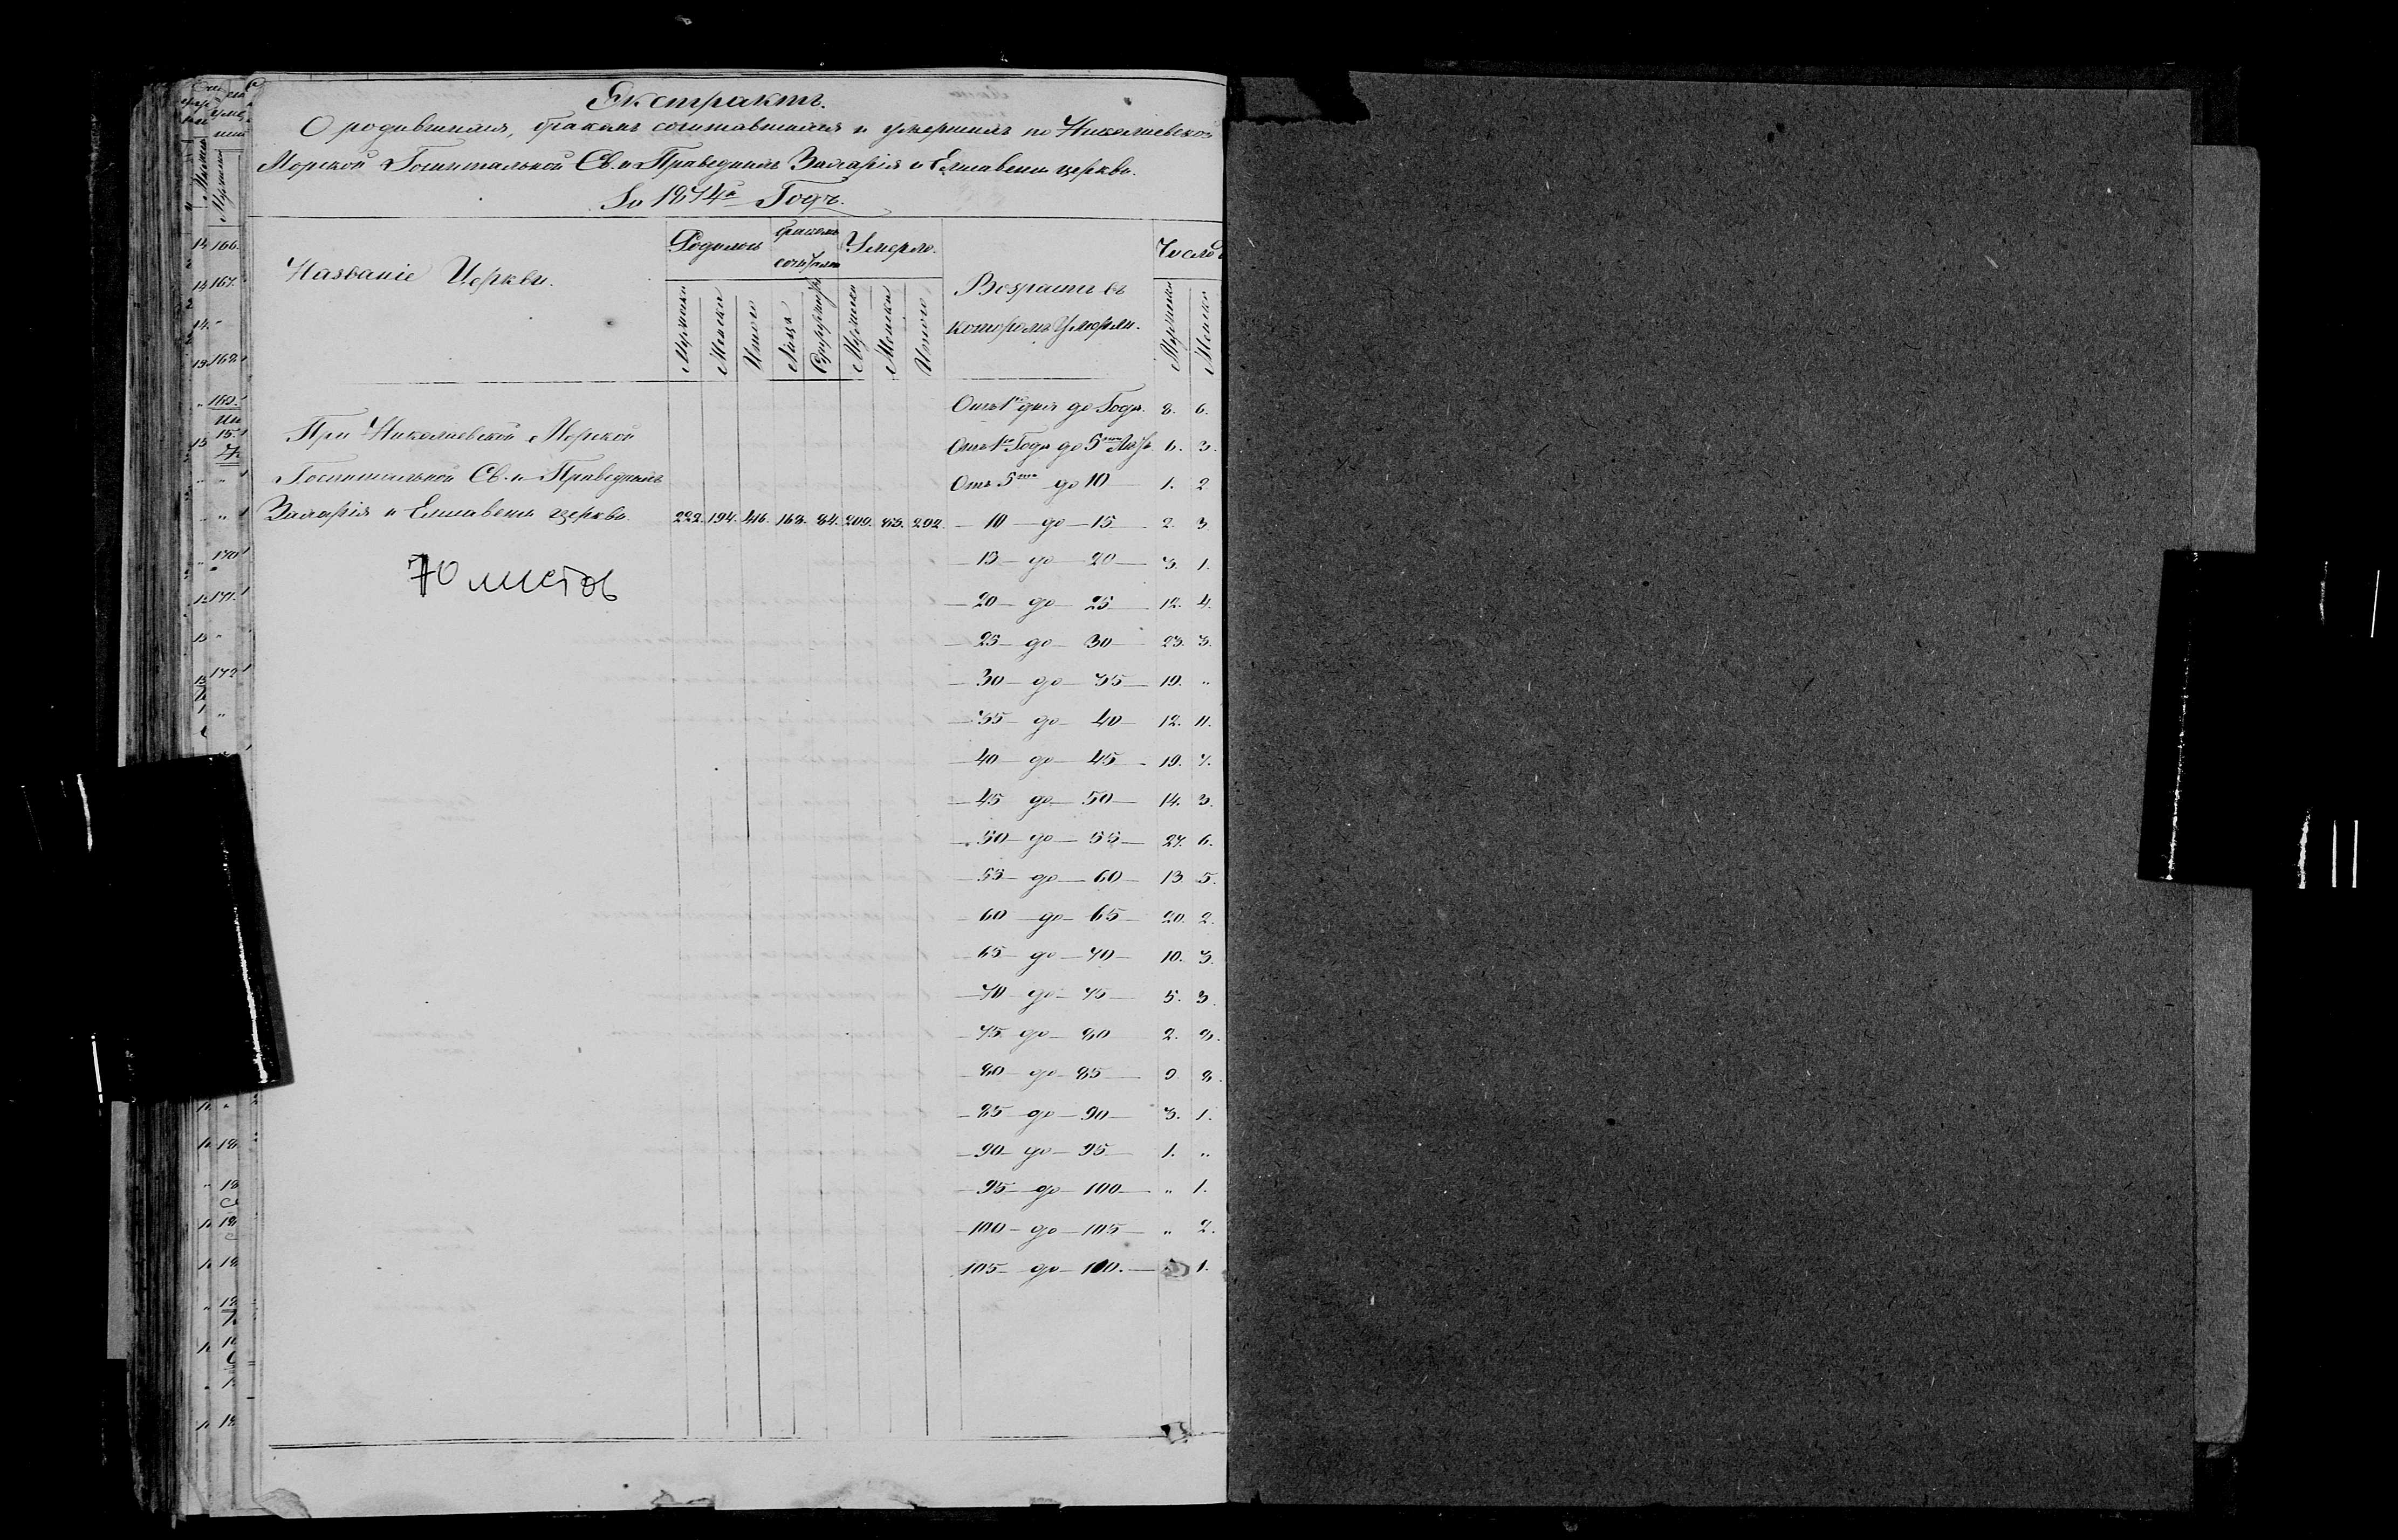 Екстрактъ.
О родившихся, бракомъ сочитавшихся и умершихъ по Николаевской
Морской Госпитальной Св. и Праведныхъ Захарія и Елисаветы церкви.
За 1874й Годъ.
Названіе Церкви.
Родилось
бракомъ
сочитал.
Умерло.
Возрастъ въ
которомъ Умерли.
Число
Мужеска
Женска
Итого
Лица
Мужеска
Женска
Итого
Мужеска
Женска
Отъ 1го дня до Года. 8. 6.
При Николаевской Морской
Отъ 1го Года до 5ти Лѣтъ 6. 3.
Госпитальной Св. и Праведныхъ
Отъ 5ти до 10 1. 2
Захарія и Елисаветы церкви. 222. 194. 416. 168. 84. 209. 83. 292. — 10 — до — 15 2. 3
70 листов
— 15 — до — 20 — 3. 1.
— 20 — до — 25 — 12. 4.
— 25 — до — 30 — 23. 3.
— 30 — до — 35 — 19. „
— 35 — до — 40 — 12. 11.
— 40 — до — 45 — 19. 7.
— 45 до — 50 — 14. 3.
— 50 — до — 55 — 27. 6.
— 55 — до — 60 — 13. 5.
— 60 — до — 65 — 20. 2.
— 65 — до — 70 — 10. 3.
— 70 — до — 75 — 5. 3.
— 75 до — 80 2. 8.
— 80 — до — 85 — 9. 8.
— 85 — до — 90 — 3. 1.
— 90 — до — 95 — 1. „
— 95 — до — 100 — „ 1.
— 100 — до — 105 — „ 2.
105 — до — 100. — 1.